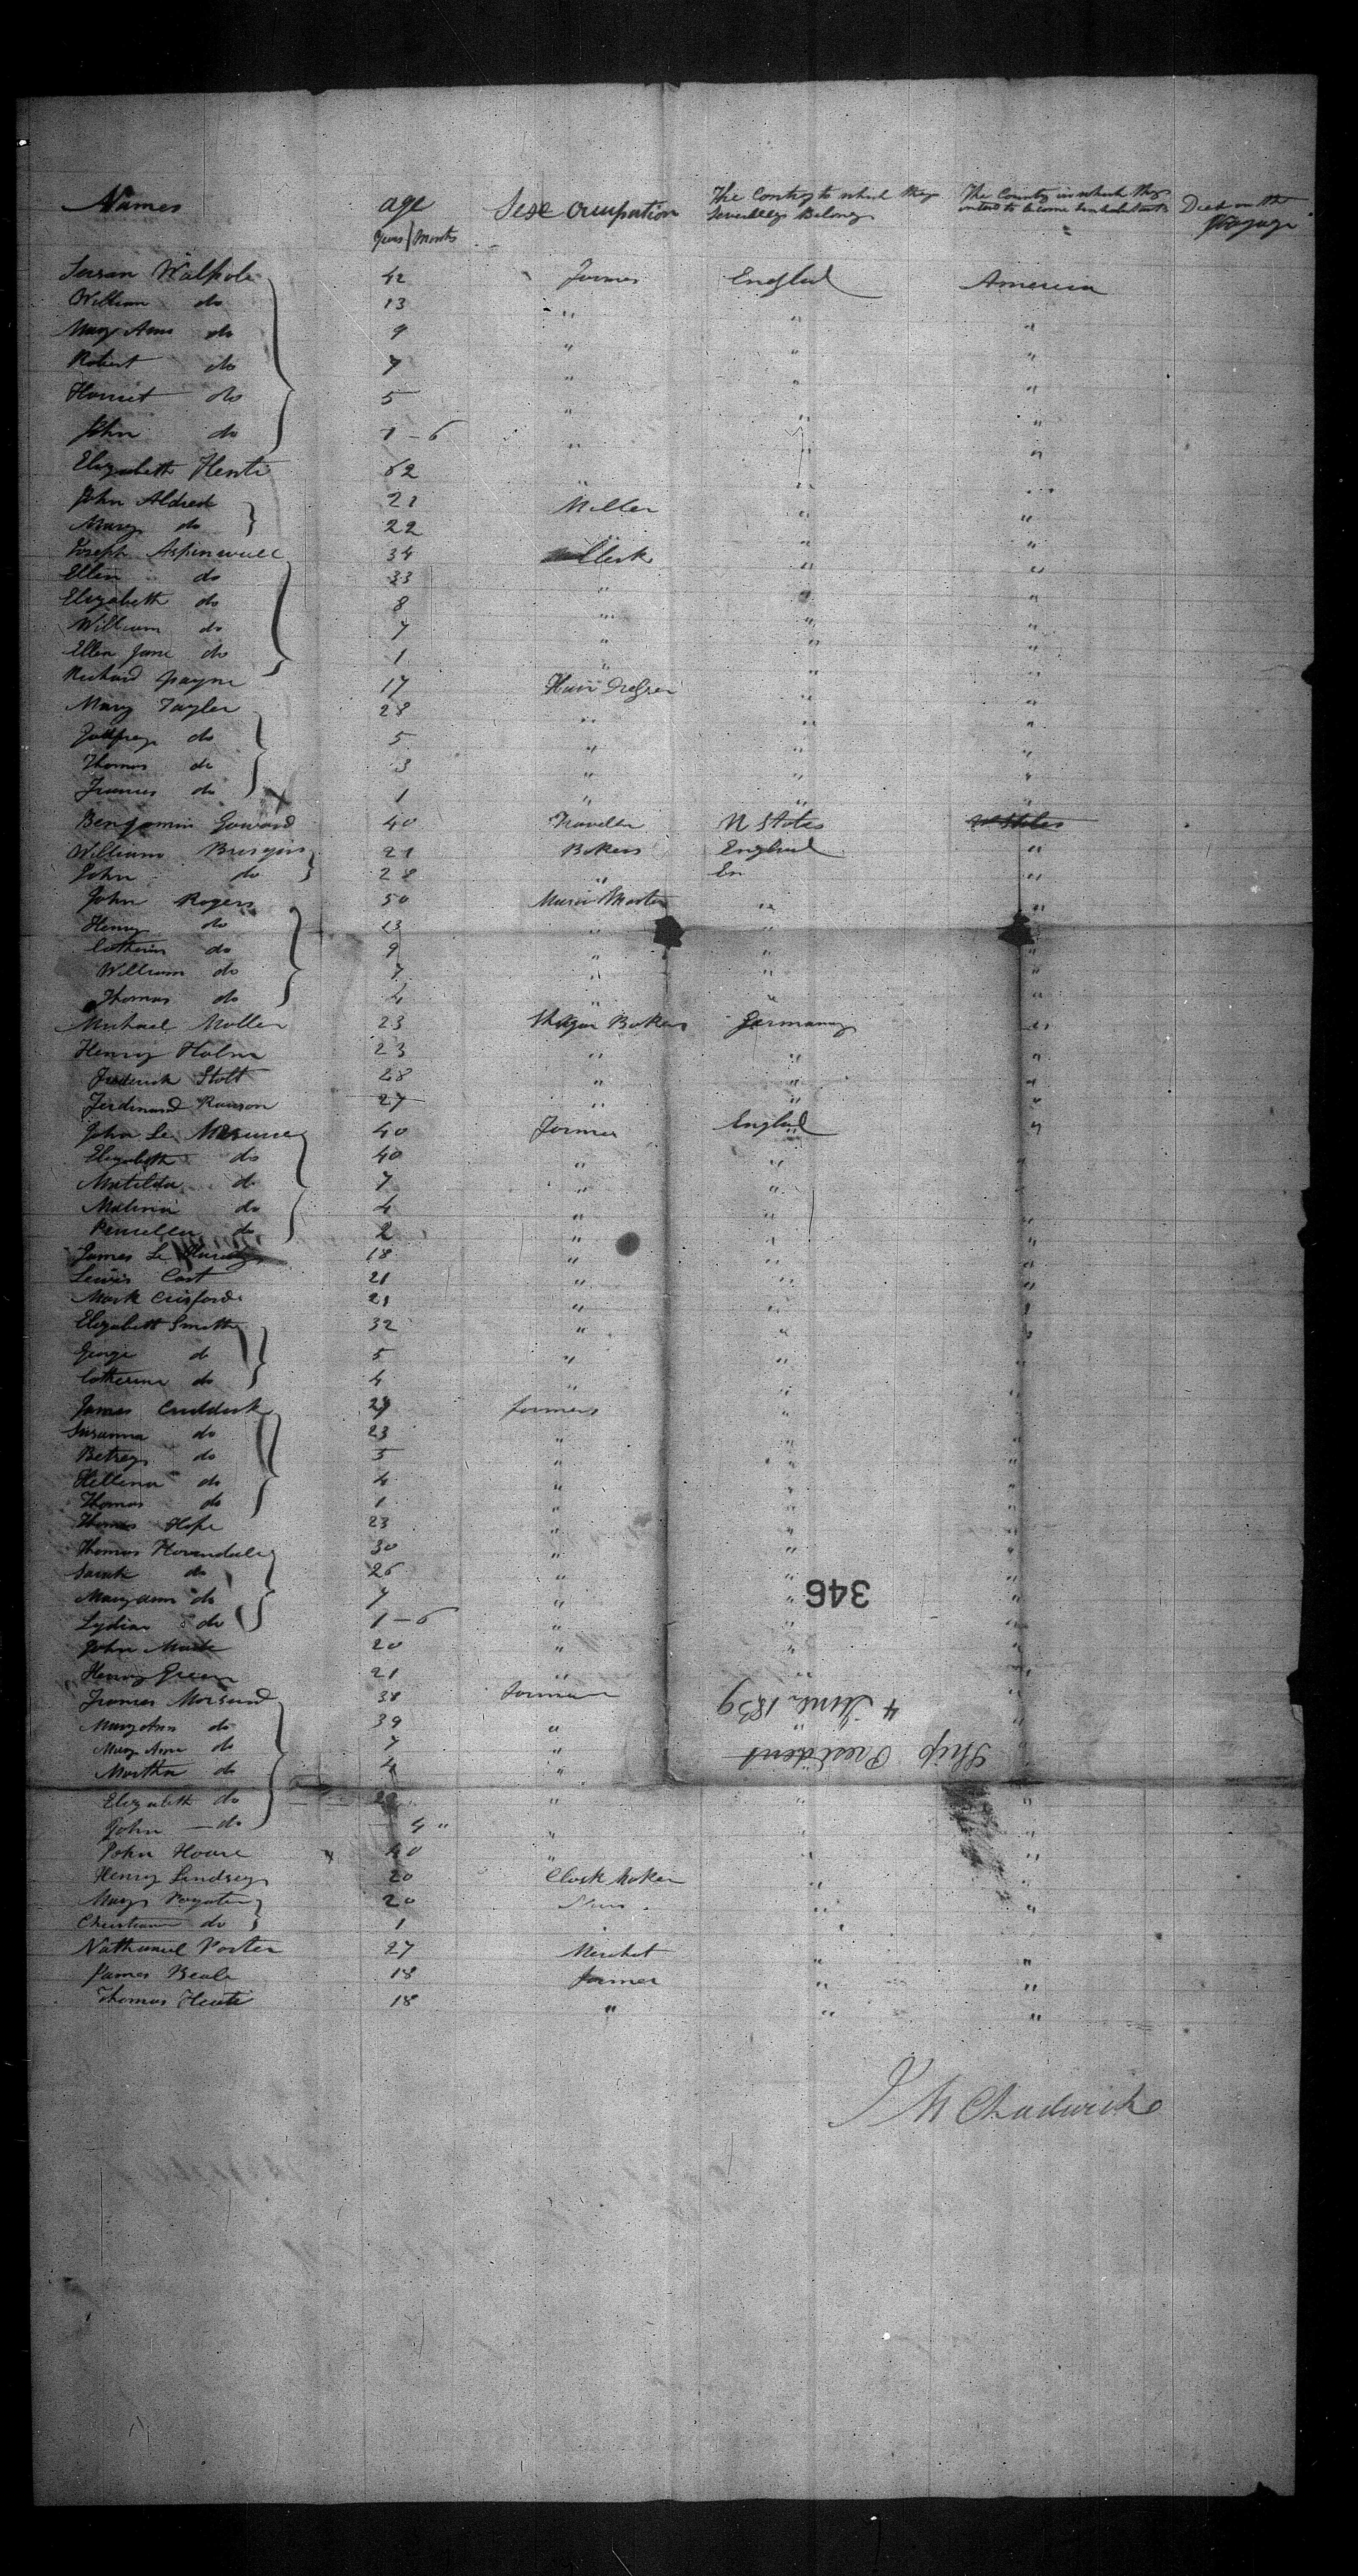 Names age Sex Occupation The Contry to which they The County in which they Died on the
years / Months Severlley Belong intend to become inhabitants Voyage
Susan Walpole 42 Farmer Englad America
William do 13 " " "
Mary Ann do 9 " " "
Robert do 7 " " "
Harriet do 5 " " "
John do 1-6 " " "
Elizabeth 62 " " "
John Aldred 21 Miller " "
Mary do 22 " " "
Joseph Aspinwall 34 Clerk " "
Ellen do 33 " " "
Elizabeth do 8 " " "
William do 7 " " "
Ellen Jane do 1 " " "
Richard Payne 17 Hair Dresser " "
Mary Tayler 28 " " "
Godfrey do 5 " " "
Thomas do 3 " " "
Frances do 1 " " "
Benjamin 40 Traveller U States U States
William 21 Bakers England "
John do 28 " En "
John Rogers 50 Music Master " "
Henry do 13 " "
Catherin do 9 " " "
William do 7 " " "
Thomas do 4 " " "
Michael Moller 23 Shugar Bakers Germany "
Henry Holm 23 " " "
Frederick Stolt 28 " " "
Ferdinand 27 " " "
John Le 40 Farmer Englad "
Elizabeth do 40 " " "
Matilda do 7 " " "
do 4 " "
do 2 " " "
James Le 18 " " "
Lewis Cast 21 " " "
Mark Crisford 21 " " "
Elizabeth Smith 32 " " "
George do 5 " " "
Catherine do 4 " " "
James Craddock 29 farmers " "
Susanna do 23 " " "
Betsey do 5 " " "
Hellena do 4 " " "
Thomas do 1 " " "
Thomas Hope 23 " " "
Thomas 30 " " "
Sarah do 26 " " "
Maryann do 7 " " "
Lydia do 1-6 " " "
John 20 " " "
Henry Green 21 " " "
Frances 38 farmer "
Mary Ann do 39 " " "
Mary Ann do 7 " "
Martha do 4 " "
Elizabeth do " " "
John do 4 " " " "
John Hoare 40 " " "
Henry Lindsey 20 Clock Maker " "
Mary 20 " "
do 1 "
Nathaniel Porter 27 Merchat " "
James Beale 18 farmer " "
Thomas 18 " " "
J M Chadwick
346
4 June 1839
Ship President